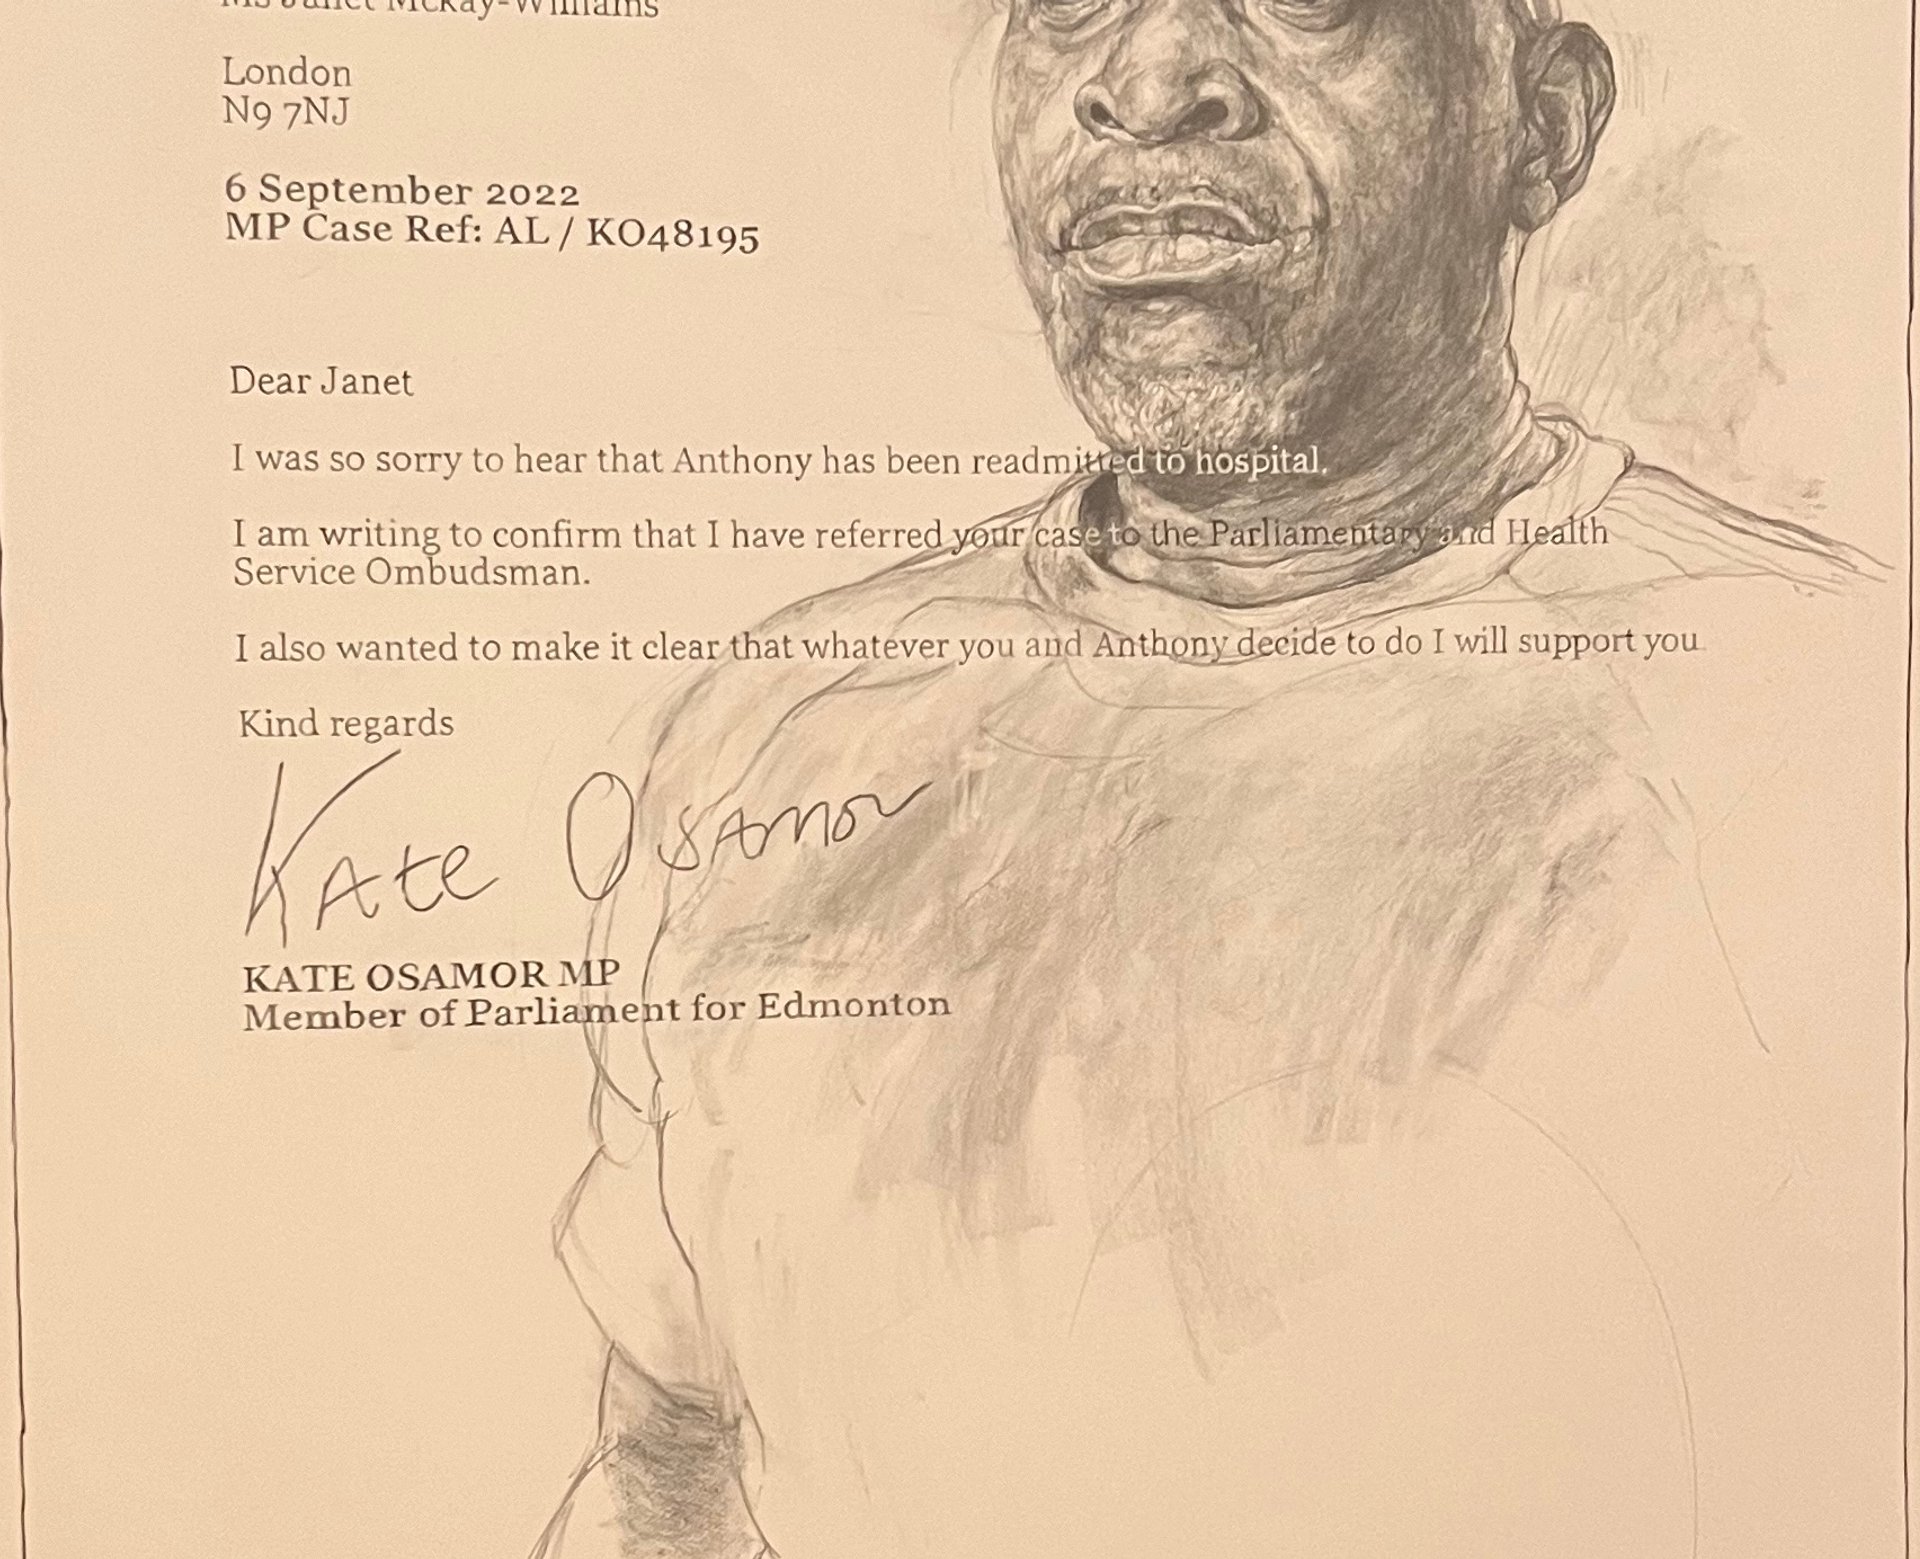 Ms Janet McKay-Williams
London
N9 7NJ
6 September 2022
MP Case Ref: AL / KO48195
Dear Janet
I was so sorry to hear that Anthony has been readmitted to hospital.
I am writing to confirm that I have referred your case to the Parliamentary and Health
Service Ombudsman.
I also wanted to make it clear that whatever you and Anthony decide to do I will support you
Kind regards
Kate Osamor
KATE OSAMOR MP
Member of Parliament for Edmonton